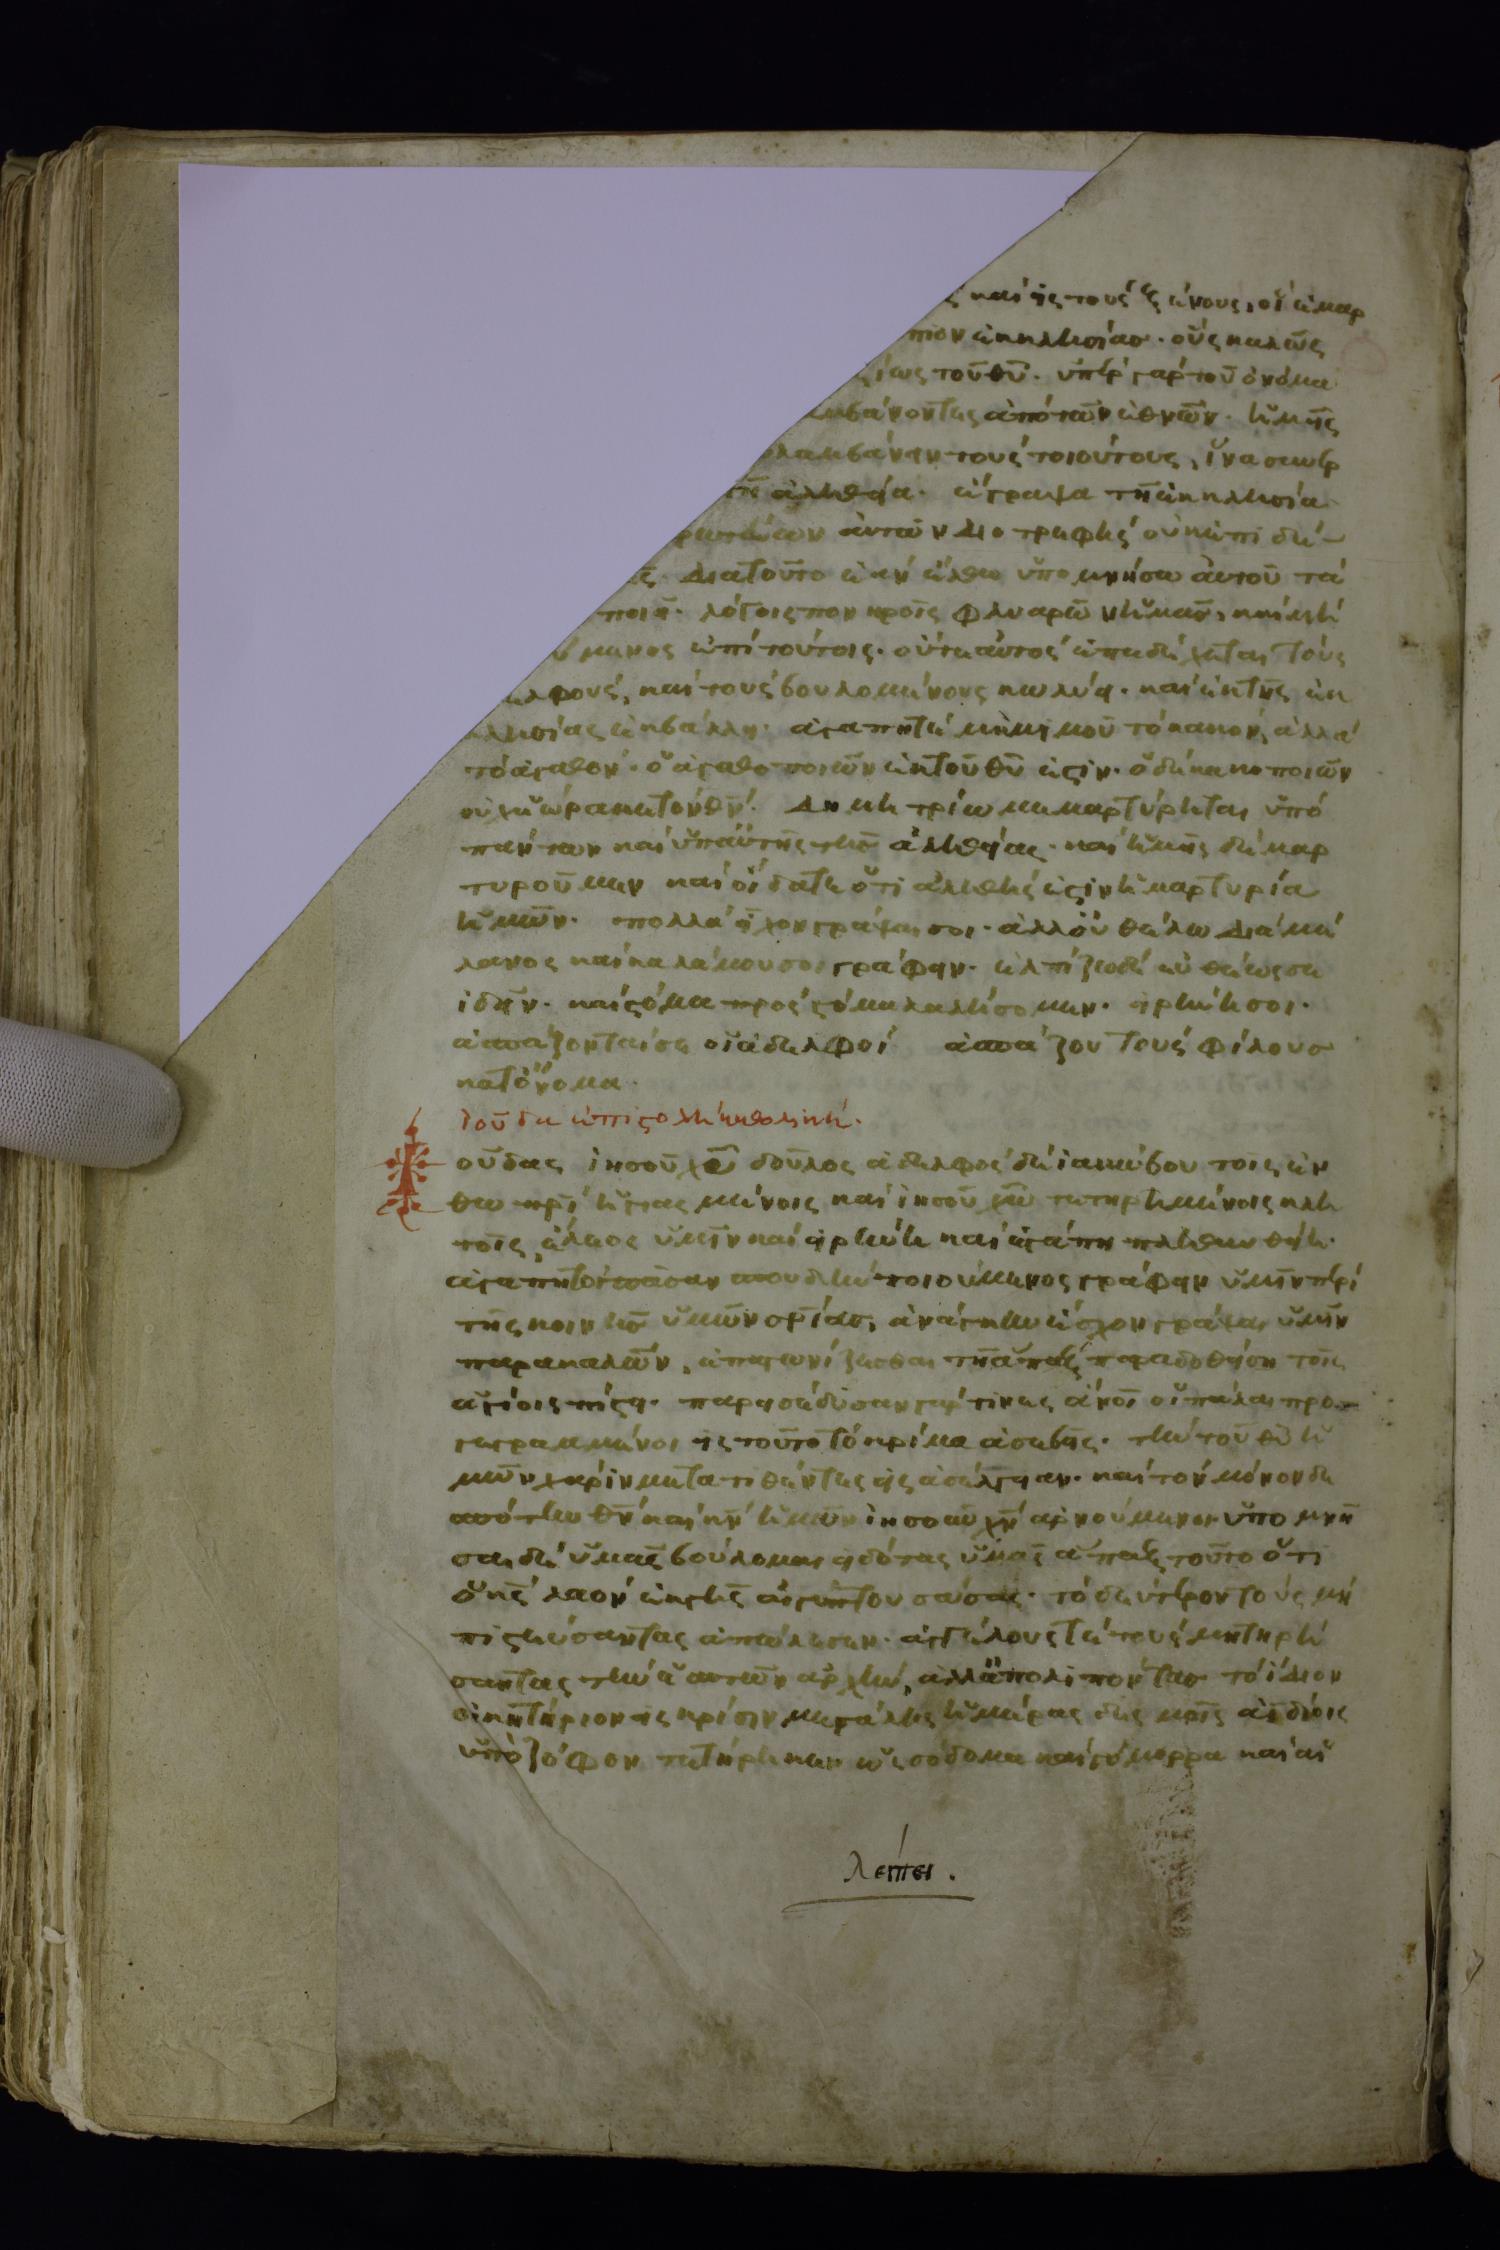 καὶ εἰς τοὺς ξένους, οἳ ἐμαρ
πιον ἐκκλησίασ· οὓς καλῶς
ξίως τοῦ θῦ· ὑπὲρ γὰρ τοῦ ὀνόμα
λαμβάνοντες ἀπὸ τῶν ἐθνῶν· ἡμεῖς
ολαμβάνειν τοὺς τοιούτους, ἵνα συνερ
τῆ ἀληθεία· ἔγραψα τῆ ἐκκλησία
ρωτεύων αὐτῶν Διοτρεφὴς οὐκ ἐπιδέ
Διατοῦτο ἐὰν ἔλθω ὑπομνήσω αὐτοῦ τὰ
ποιεῖ· λόγοις πονηροῖς φλυαρῶν ἡμᾶς, καὶ μὴ
ύμενος ἐπὶ τούτοις· οὔτε αὐτὸς ἐπιδέχεται τοὺς
ελφοὺς, καὶ τοὺς βουλομένους κωλύει· καὶ ἐκ τῆς ἐκ
κλησίας ἐκβάλλει· ἀγαπητὲ μὴ μιμοῦ τὸ κακὸν, ἀλλὰ
τὸ ἀγαθόν· ὁ ἀγαθοποιῶν ἐκ τοῦ θῦ ἐστίν· ὁ δὲ κακοποιῶν
οὐχ ἑώρακε τὸν θν· Δημητρίω μεμαρτύρηται ὑπὸ
πάντων καὶ ὑπ αὐτῆς τῆς ἀληθείας· καὶ ἡμεῖς δὲ μαρ
τυροῦμεν καὶ οἴδατε ὅτι ἀληθής ἐστιν ἡ μαρτυρία
ἡμῶν· πολλὰ εἶχον γράψαι σοι· ἀλλ οὐ θέλω Διὰ μέ
λανος καὶ καλάμου σοι γράφειν· ἐλπίζω δὲ εὐθέως σε
ἰδεῖν· καὶ στόμα πρὸς στόμα λαλήσομεν· εἰρήνη σοι·
ἀσπάζονταί σε οἱ ἀδελφοί ἀσπάζου τοὺς φίλουσ
κατ ὄνομα·
Ἰούδα ἐπιστολὴ καθολική·
ούδας ἰησοῦ χῦ δοῦλος ἀδελφὸς δὲ ἰακώβου τοῖς ἐν
θω πρὶ ἡγιασμένοις καὶ ἰησοῦ χω τετηρημένοις κλη
τοῖς, ἔλεος ὑμῖν καὶ εἰρήνη καὶ ἀγάπη πληθυνθείη·
ἀγαπητοὶ πᾶσαν σπουδὴν ποιούμενος γράφειν ὑμῖν περὶ
τῆς κοινῆς ὑμῶν σρίασ, ἀνάγκην ἔσχον γράψαι ὑμῖν
παρακαλῶν, ἐπαγωνίζεσθαι τῆ ἅπαξ παραδοθείση τοῖς
ἁγίοις πίστει· παρεισέδυσαν γάρ τινες ἄνοι οἱ πάλαι προ
γεγραμμένοι εἰς τοῦτο τὸ κρίμα ἀσεβεῖς· τὴν τοῦ θῦ ἡ
μῶν χάριν μετατιθέντες εἰς ἀσέλγειαν· καὶ τὸν μόνον δε
σπότην θν καὶ κν ἡμῶν ἰησοῦν χν ἀρνούμενοι ὑπομνῆ
σαι δὲ ὑμᾶς βούλομαι εἰδότας ὑμᾶς ἅπαξ τοῦτο ὅτι
ὁ κς λαὸν ἐκ γῆς αἰγύπτου σώσας· τὸ δεύτερον τοὺς μὴ
πιστεύσαντας ἀπώλεσεν· ἀγγέλους τὲ τοὺς μὴ τηρή
σαντας τὴν ἑαυτῶν ἀρχὴν, ἀλλ ἀπολιπόντασ τὸ ἴδιον
οἰκητήριον εἰς κρίσιν μεγάλης ἡμέρας δεσμοῖς ἀϊδίοις
ὑπὸ ζόφον τετήρηκεν ὡς σόδομα καὶ γόμορρα καὶ αἱ
λείπει.